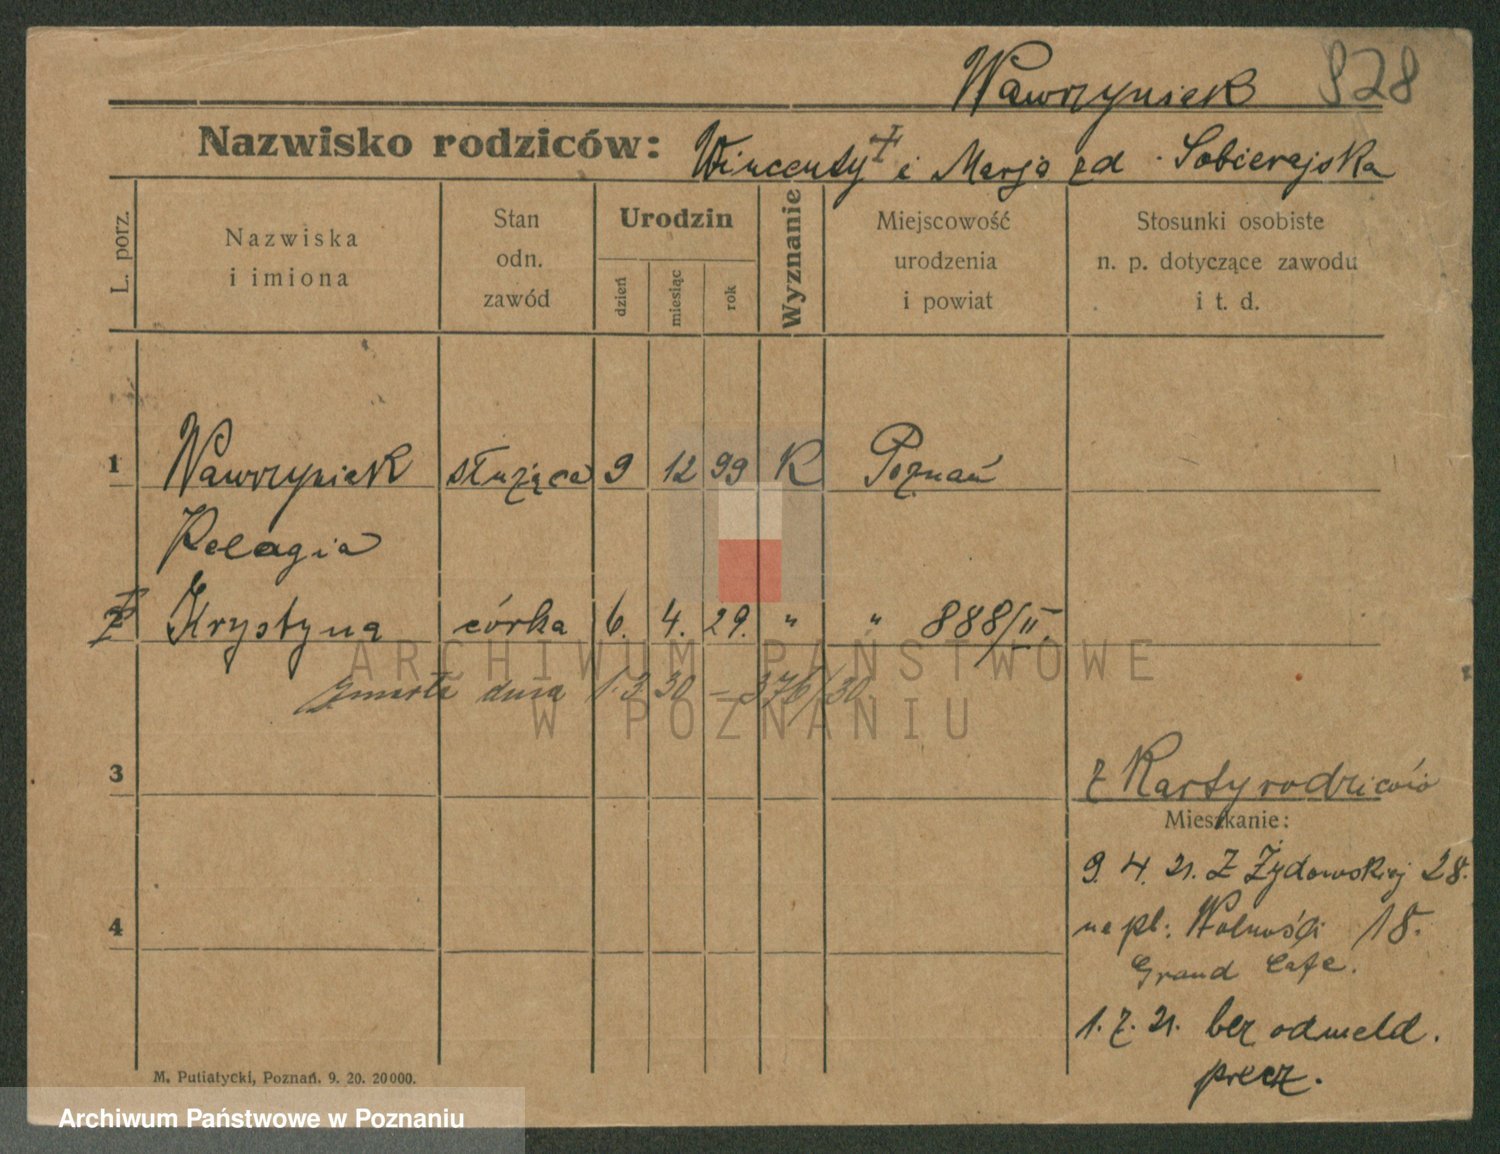 Wawrzyniak 828
Nazwisko rodziców: Wincenty + i Marja zd. Sobierajska
L. porz.
Nazwiska i imiona
Stan odn. zawód
Urodzin
dzień
miesiąc
rok
Wyznanie
Miejscowość urodzenia i powiat
Stosunki osobiste n. p. dotyczące zawodu i t. d.
1 Wawrzyniak służąca 9 12 99 K Poznań
Pelagia
2 Krystyna córka 6. 4. 29. " " 888/II.
zmarła dnia 1.3.30 = 376/30
3
z Karty rodziców
Mieszkanie:
9. 4. 21. Z Żydowskiej 28.
4
na pl. Wolności 18.
Grand Cafe.
1. 7. 21. bez odmeld.
precz.
M. Putiatycki, Poznań. 9. 20. 20000.
ARCHIWUM PAŃSTWOWE
W POZNANIU
Archiwum Państwowe w Poznaniu